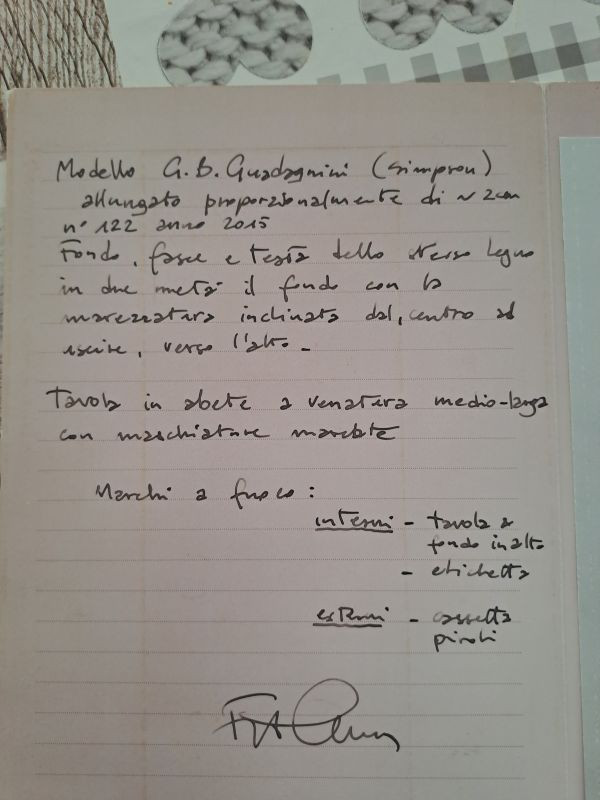 Modello G.B. Guadagnini (Simpson)
allungato proporzionalmente di ~ 2cm
n° 122 anno 2015
Fondo, fasce e testa dello stesso legno
in due metà il fondo con la
marezzatura inclinata dal centro ad
uscire, verso l'alto.
Tavola in abete a venatura medio-larga
con maschiature marcate
Marchi a fuoco:
interni - tavola e
fondo in alto
- etichetta
esterni - cassetta
piroli